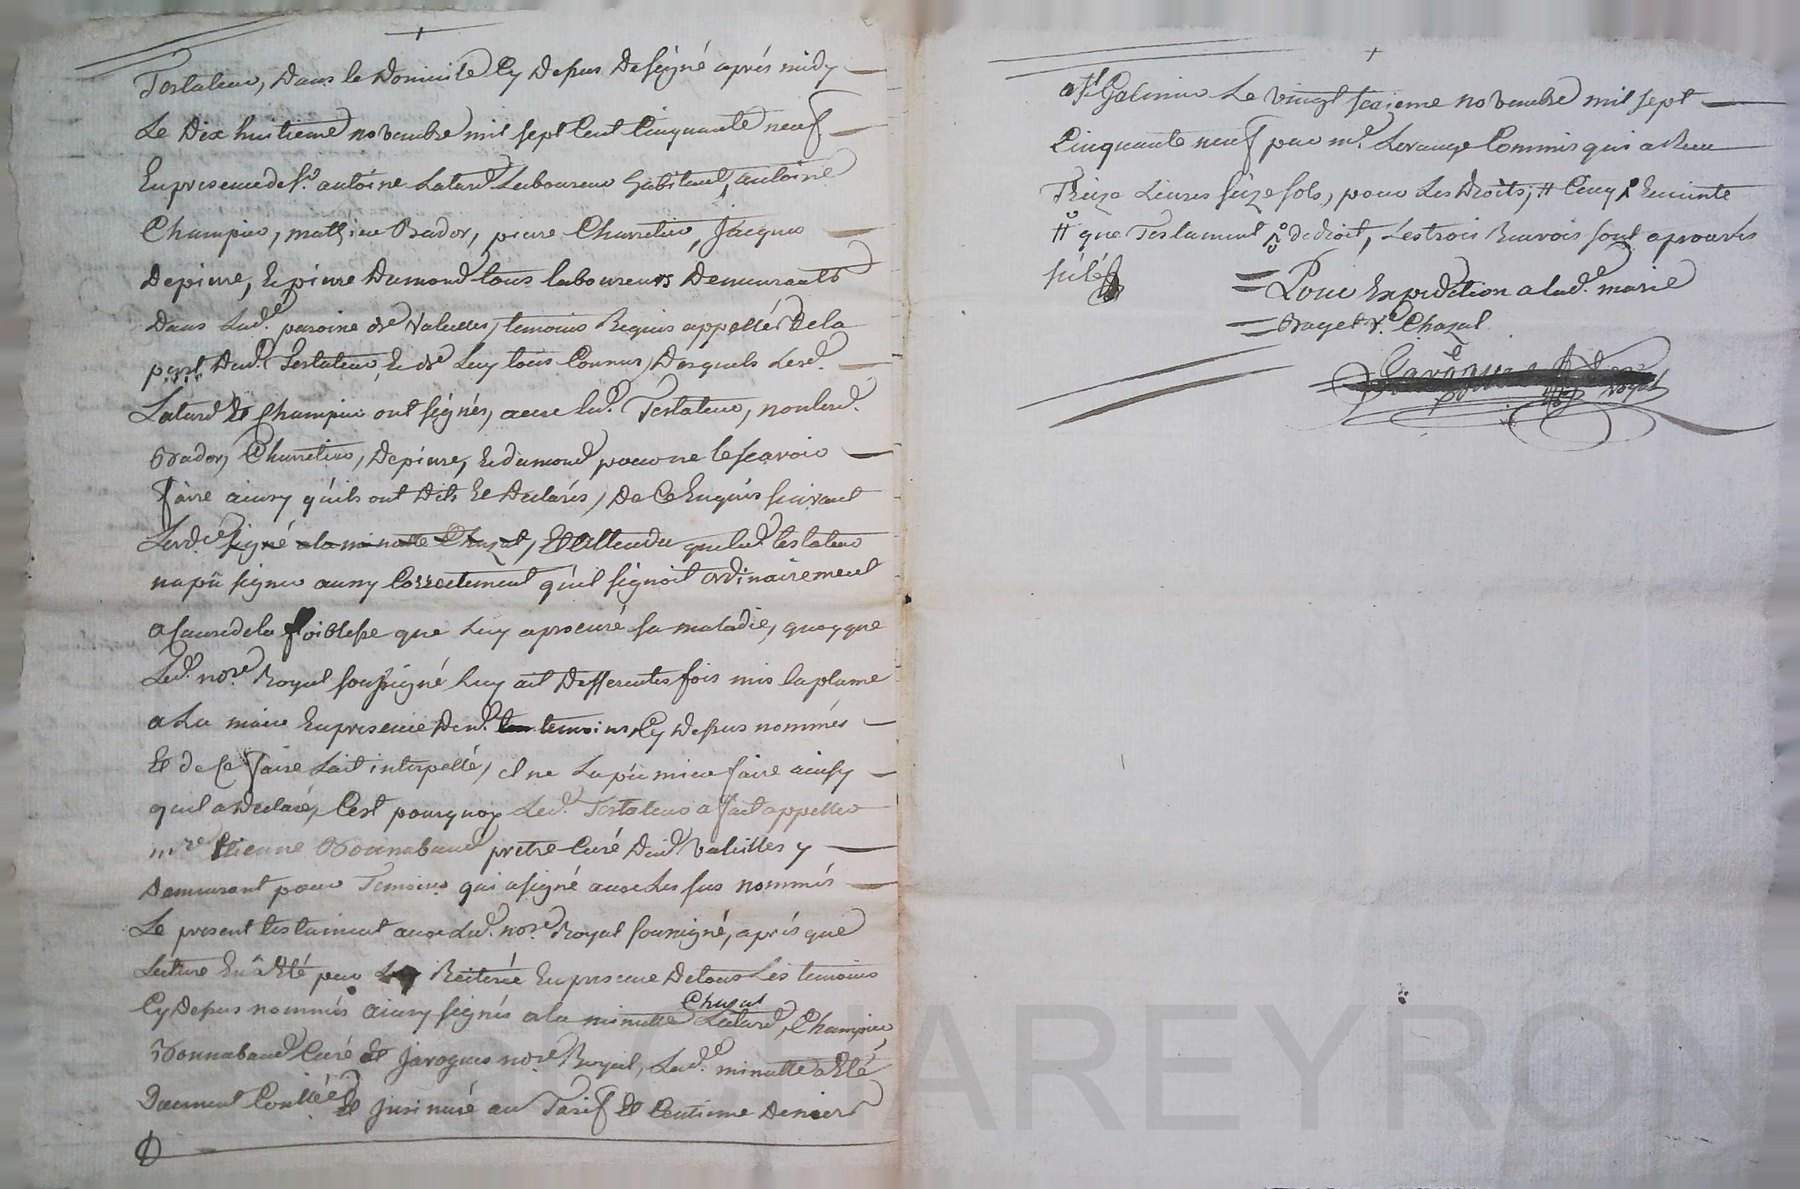 Testateur, Dans le Domicile Cy Dessus Designé aprés midy
Le Dix huitieme novembre mil sept Cent Cinquante neuf
En presence de Sr. antoine Latard Laboureur habitant, antoine
Champier, mathieu Brador, pierre Charretier, Jacques
Depierre, Et pierre Dumond tous laboureurs Demeurants
Dans Lad. paroisse de Valeilles, temoins Requis appellés De la
part Dud. Testateur, Et de Luy tous Connus, Desquels Lesd.
Latard Et Champier ont signés, avec led. Testateur, non lesd.
Brador, Charretier, Depierre, Et dumond pour ne le scavoir
faire ainsy qu'ils ont Dits Et Declarés, De Ce Enquis suivant
Lord.ce signé a la minutte Chazal, Et Attendu que led. testateur
na pû signer aussy Correctement qu'il signoit ordinairement
a Cause de la foiblesse que Luy a procuré sa maladie, quoyque
Led. nore. Royal soussigné luy ait Differentes fois mis la plume
a La main En presence Desd. temoins Cy Dessus nommés
Et de Ce faire Lait interpellé, il ne La pû mieux faire ainsy
quil a Declaré, C'est pourquoy Led. Testateur a fait appeller
mre. Etienne Bonnabaud pretre Curé Dud. Valeilles y
Demeurant pour Temoins qui a signé avec Les sus nommés
Le present testament avec led. nore. Royal soussigné, aprés que
Lecture En â Eté par Luy Reiterée En presence De tous Les temoins
Cy Dessus nommés ainsy signés a la minutte Chazal Latard, Champier,
Bonnabaud Curé Et Jaroques nore. Royal, Lad. minutte a Eté
Duement Contlée Et Insinuée au Tarif Et Centieme Denier
a St Galmier Le vingt sixieme novembre mil sept
Cinquante neuf par mr. Lerouge Commis qui a Receu
Treize Livres seize sols, pour Les Droits, # Cinq Enceinte
# que Testament de droit, Les trois Renvois sont aprouvés
Pour Expedition a lad. marie
Brayet ve. Chazal
CHAREYRON